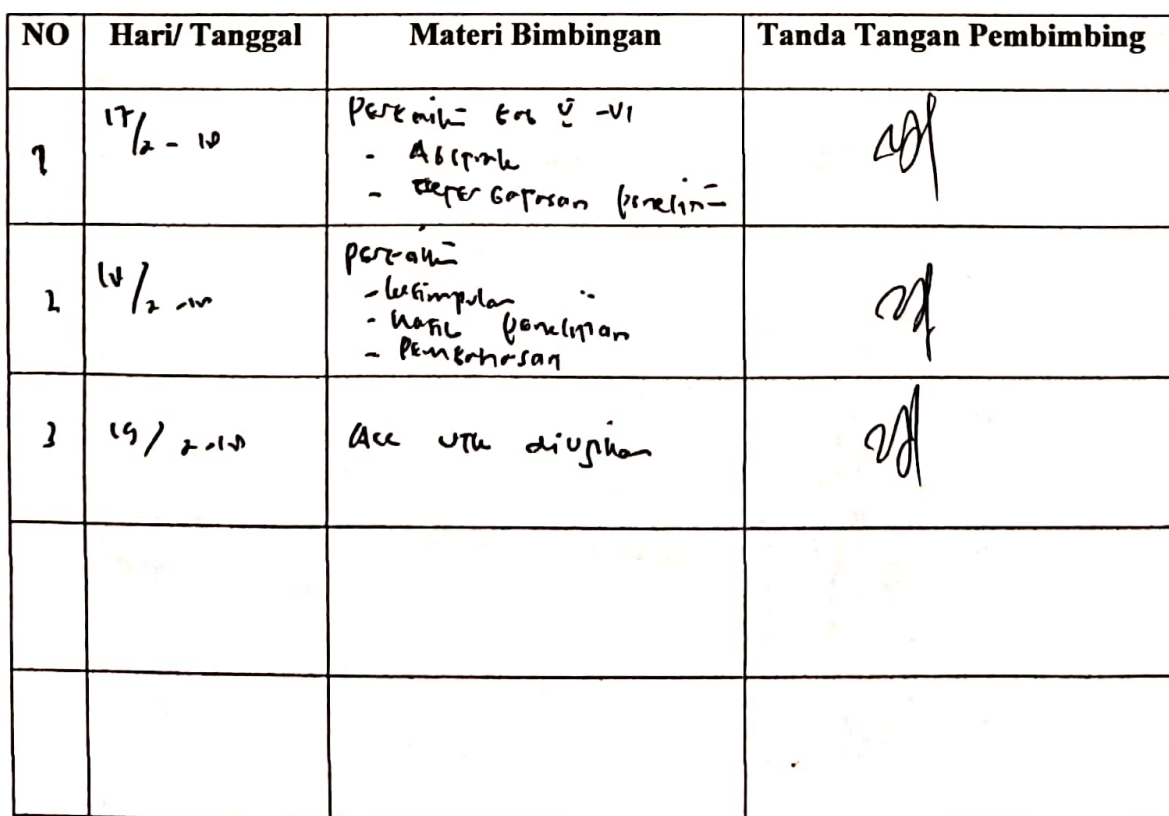 NO Hari/ Tanggal Materi Bimbingan Tanda Tangan Pembimbing
1 17/2 - 18 Perbaiki bab V - VI
- Abstrak
- Keterbatasan penelitian
2 18/2 - 18 Perbaiki
- kesimpulan
- hasil penelitian
- Pembahasan
3 19/2 - 18 Acc utk diujikan